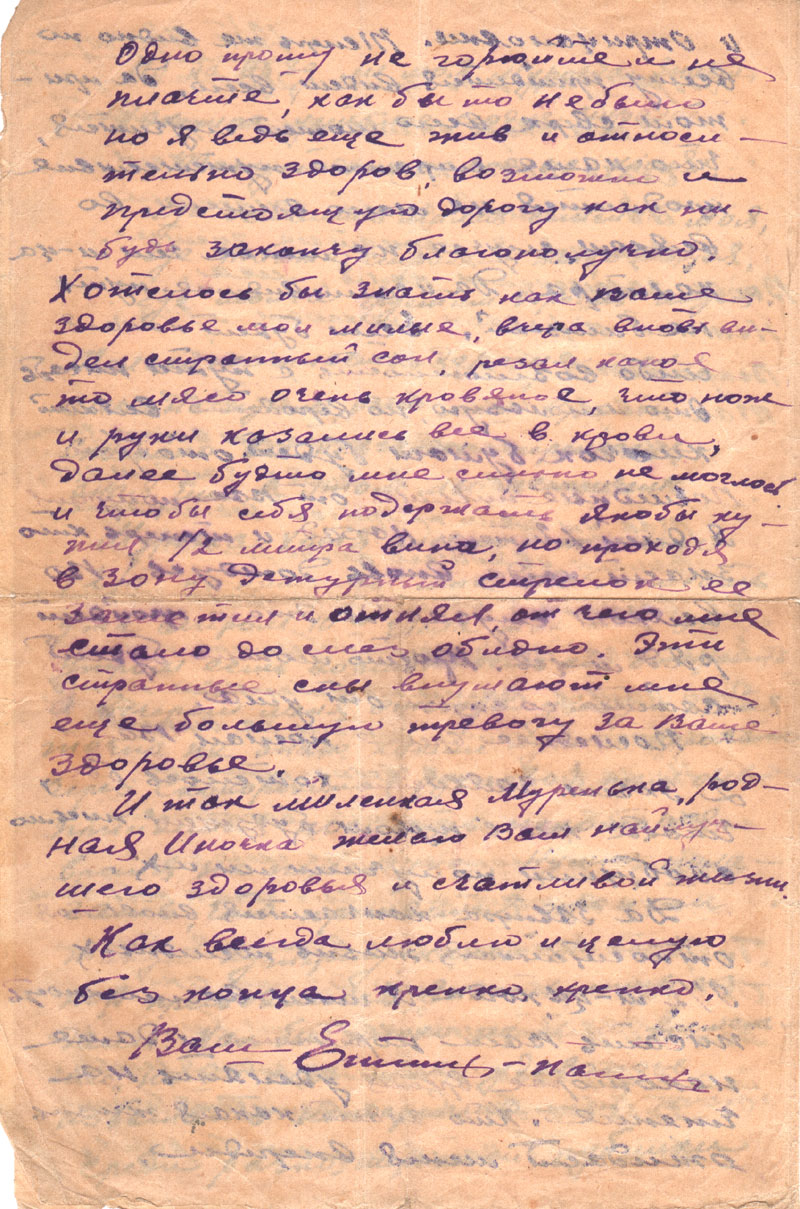 Одно прошу не горюйте и не
плачте, как бы то небыло
но я ведь еще жив и относи-
тельно здоров, возможно и
предстоящую дорогу как ни-
будь закончу благополучно.
Хотелось бы знать как ваше
здоровье мои милые, вчера вновь ви-
дел странный сон, резал какоя
то мясо очень кровяное, что нож
и руки казались все в крови,
далее будто мне сильно не моглось
и чтобы себя подержать якобы ку-
пил 1/2 литра вина, но проходя
в зону дежурный стрелок ее
заметил и отнял, от чего мне
стало до слез обидно. Эти
странные сны внушают мне
еще большую тревогу за Ваше
здоровье.
И так миленкая Муренька, род-
ная Иночка желаю Вам найлуч-
шего здоровья и счатливой жизни.
Как всегда люблю и целую
без конца крепко, крепко.
Ваш